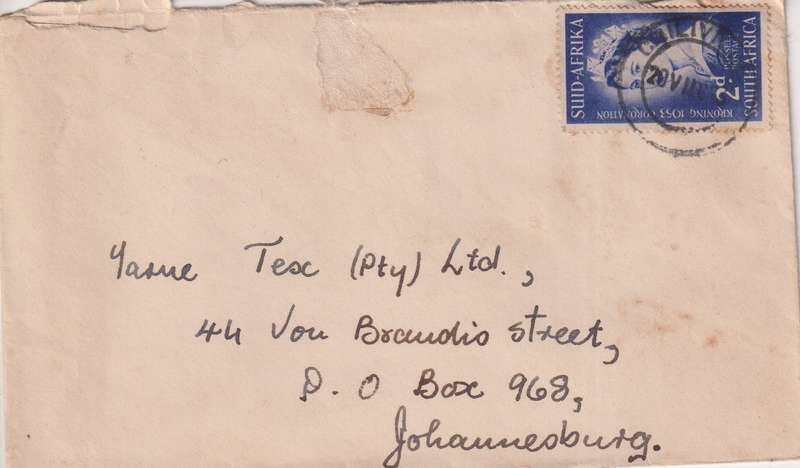 SUID-AFRIKA
KRONING 1953 CORONATION
2d
POSSEEL
POSTAGE
SOUTH AFRICA
20 VIII
Yarne Tex (Pty) Ltd.,
44 Von Brandis street,
P. O Box 968,
Johannesburg.